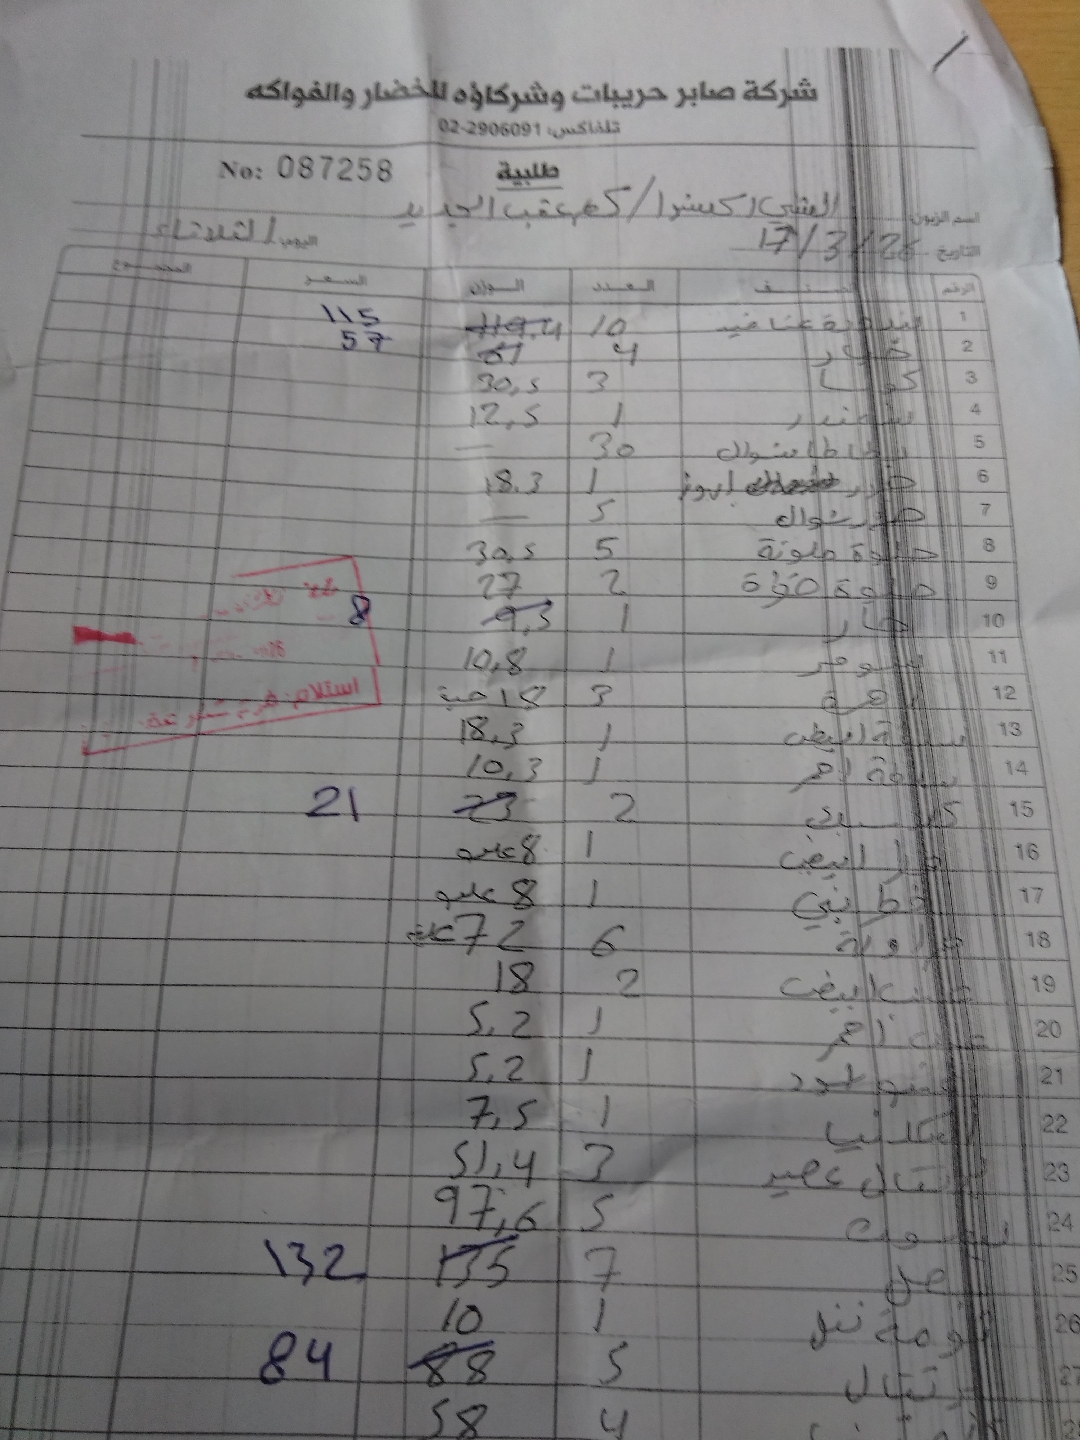 شركة صابر حريبات وشركاؤه للخضار والفواكه
تلفاكس: 02-2906091
طلبية
No: 087258
اسم الزبون: / كفر عقب الجديد
التاريخ 17/3/26 اليوم الثلاثاء
الرقم الصنف العدد الوزن السعر المجموع
1 بندورة عناقيد 10 119.4 115
2 خيار 4 61 57
3 كوسا 3 30,5
4 شمندر 1 12,5
5 بطاطا شوال 30 —
6 جزر ابروز 1 18.3
7 جزر شوال 5 —
8 حلوة ملونة 5 30,5
9 حلوة 2 27
10 حار 1 9,3 8
11 بومر 1 10,8
12 زهرة 3 18 حبة
13 ملفوف ابيض 1 18,3
14 احمر 1 10,3
15 2 23 21
16 ابيض 1 8 علبه
17 فطر بني 1 8 علبه
18 فراولة 6 72 علبة
19 عنب ابيض 2 18
20 عنب احمر 1 5,2
21 1 5,2
22 اسكدنيا 1 7,5
23 برتقال عصير 3 51,4
24 5 97,6
25 7 135 132
26 1 10
27 برتقال 5 88 84
4 58
استلام: فرع